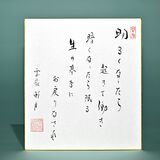 明るくなったら
起きて働き
暗くなったら眠る
生の基本に
お戻りなされ